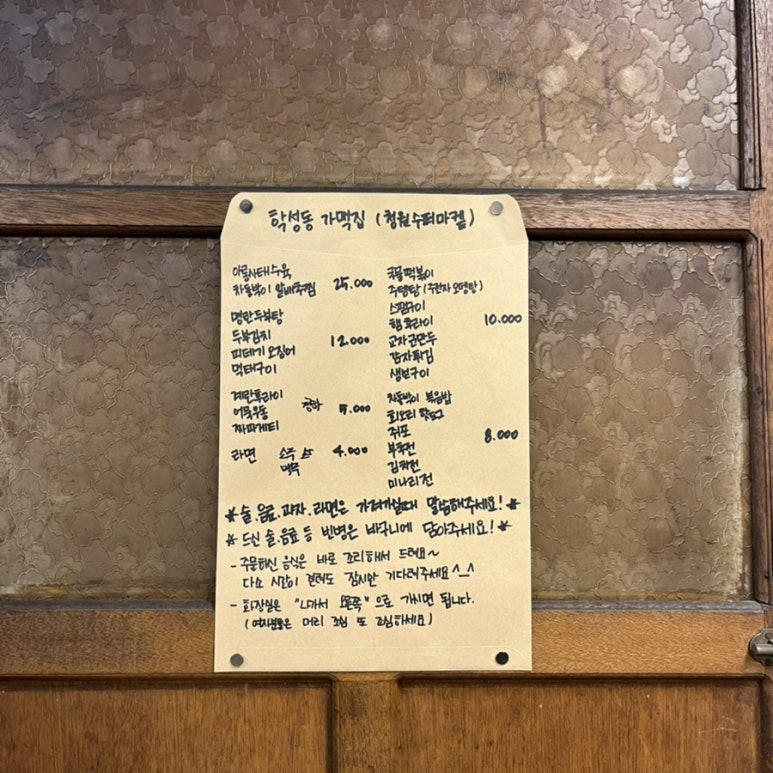 학성동 가맥집 (청원수퍼마켙)
아롱사태수육
차돌박이 알배추찜 25.000
명란두부탕
두부김치
피데기 오징어 12.000
먹태구이
계란후라이
어묵우동 5.000
짜파게티
라면 소주 4.000
맥주
국물떡볶이
주뎅탕 (주전자 오뎅탕)
스팸구이
햄 후라이 10.000
교자군만두
감자튀김
생보구이
차돌박이 볶음밥
회오리 핫도그
쥐포 8.000
부추전
김치전
미나리전
*술.음료.과자.라면은 가져가실때 말씀해주세요! *
* 드신 술.음료 등 빈병은 바구니에 담아주세요! *
- 주문하신 음식은 바로 조리해서 드려요~
다소 시간이 걸려도 잠시만 기다려주세요^_^
- 화장실은 "나가서 왼쪽"으로 가시면 됩니다.
(여자분들은 머리 조심 또 조심하세요)